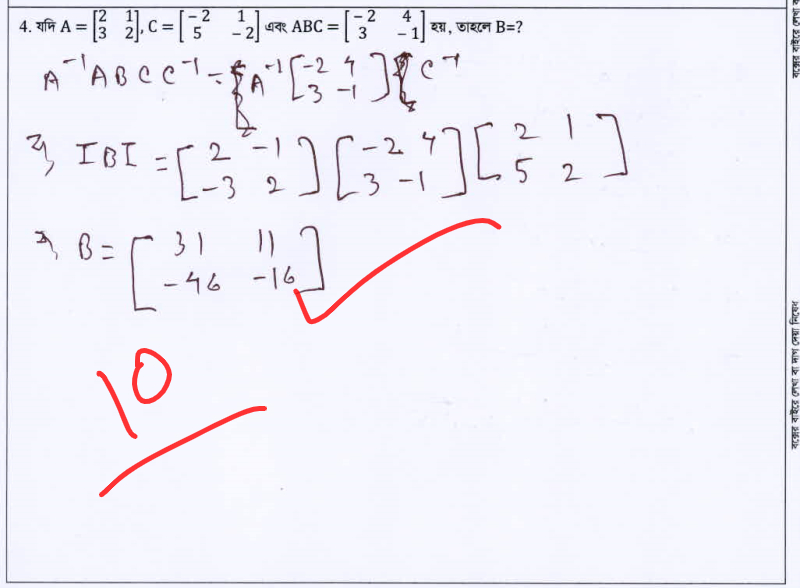 4. যদি A = [2 1; 3 2], C = [−2 1; 5 −2] এবং ABC = [−2 4; 3 −1] হয়, তাহলে B=?
A⁻¹ A B C C⁻¹ = A⁻¹ [−2 4; 3 −1] C⁻¹
বা, I B I = [2 −1; −3 2] [−2 4; 3 −1] [2 1; 5 2]
বা, B = [31 11; −46 −16]
10
বক্সের বাইরে লেখা বা দাগ দেয়া নিষেধ